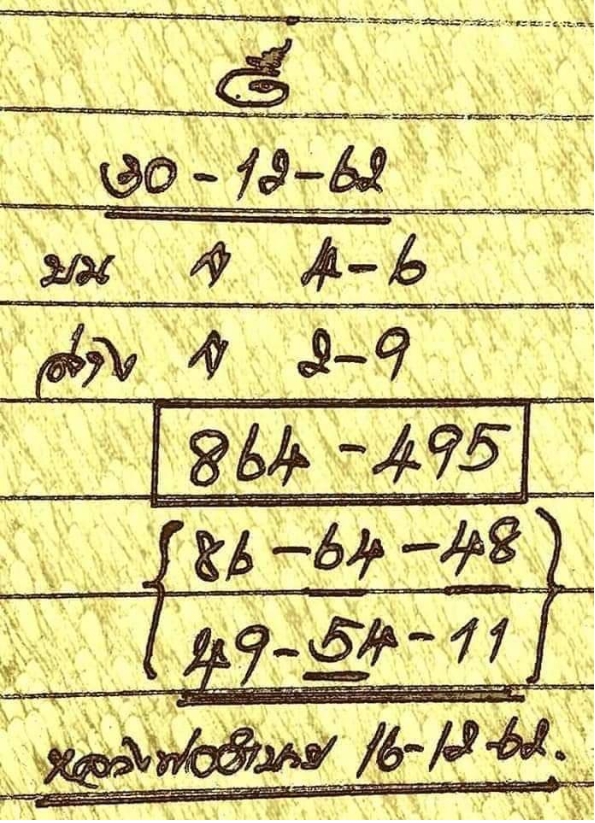 30-12-62
บน 4-6
ล่าง 2-9
864-495
86-64-48
49-54-11
หลวงพ่ออำนวย 16-12-62.